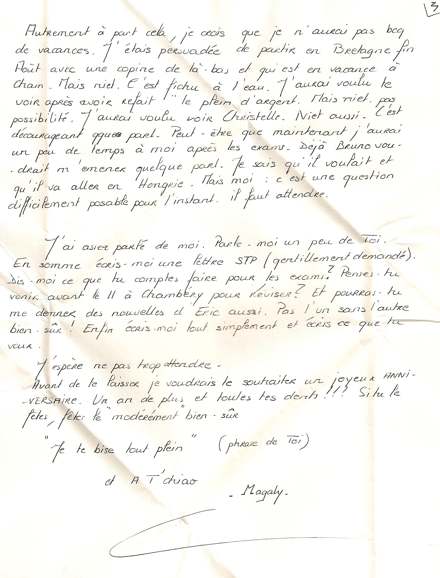 3
Autrement à part cela, je crois que je n'aurai pas bcq
de vacances. J'étais persuadée de partir en Bretagne fin
Août avec une copine de là-bas et qui est en vacance à
Cham. Mais niet. C'est fichu à l'eau. J'aurai voulu te
voir après avoir refait "le plein d'argent. Mais niet, pas
possibilité. J'aurai voulu voir Christelle. Niet aussi. C'est
décourageant qque part. Peut-être que maintenant j'aurai
un peu de temps à moi après les exams. Dejà Bruno vou-
-drait m'emener quelque part. Je sais qu'il voulait et
qu'il va aller en Hongrie. Mais moi : c'est une question
difficilement posable pour l'instant. il faut attendre.
J'ai assez parlé de moi. Parle-moi un peu de Toi.
En somme écris-moi une lettre STP (gentillement demandé).
Dis-moi ce que tu comptes faire pour les exams? Penses-tu
venir avant le 11 à Chambéry pour Réviser? Et pourras-tu
me donner des nouvelles d'Eric aussi. Pas l'un sans l'autre
bien-sûr! Enfin écris-moi tout simplement et écris ce que tu
veux.
J'espère ne pas trop attendre.
Avant de te laisser je voudrais te souhaiter un joyeux ANNI-
-VERSAIRE. Un an de plus et toutes tes dents!!! Si tu le
fêtes, fêtes le "modérément bien-sûr
"Je te bise tout plein" (phrase de Toi)
et A T'chiao
- Magaly.